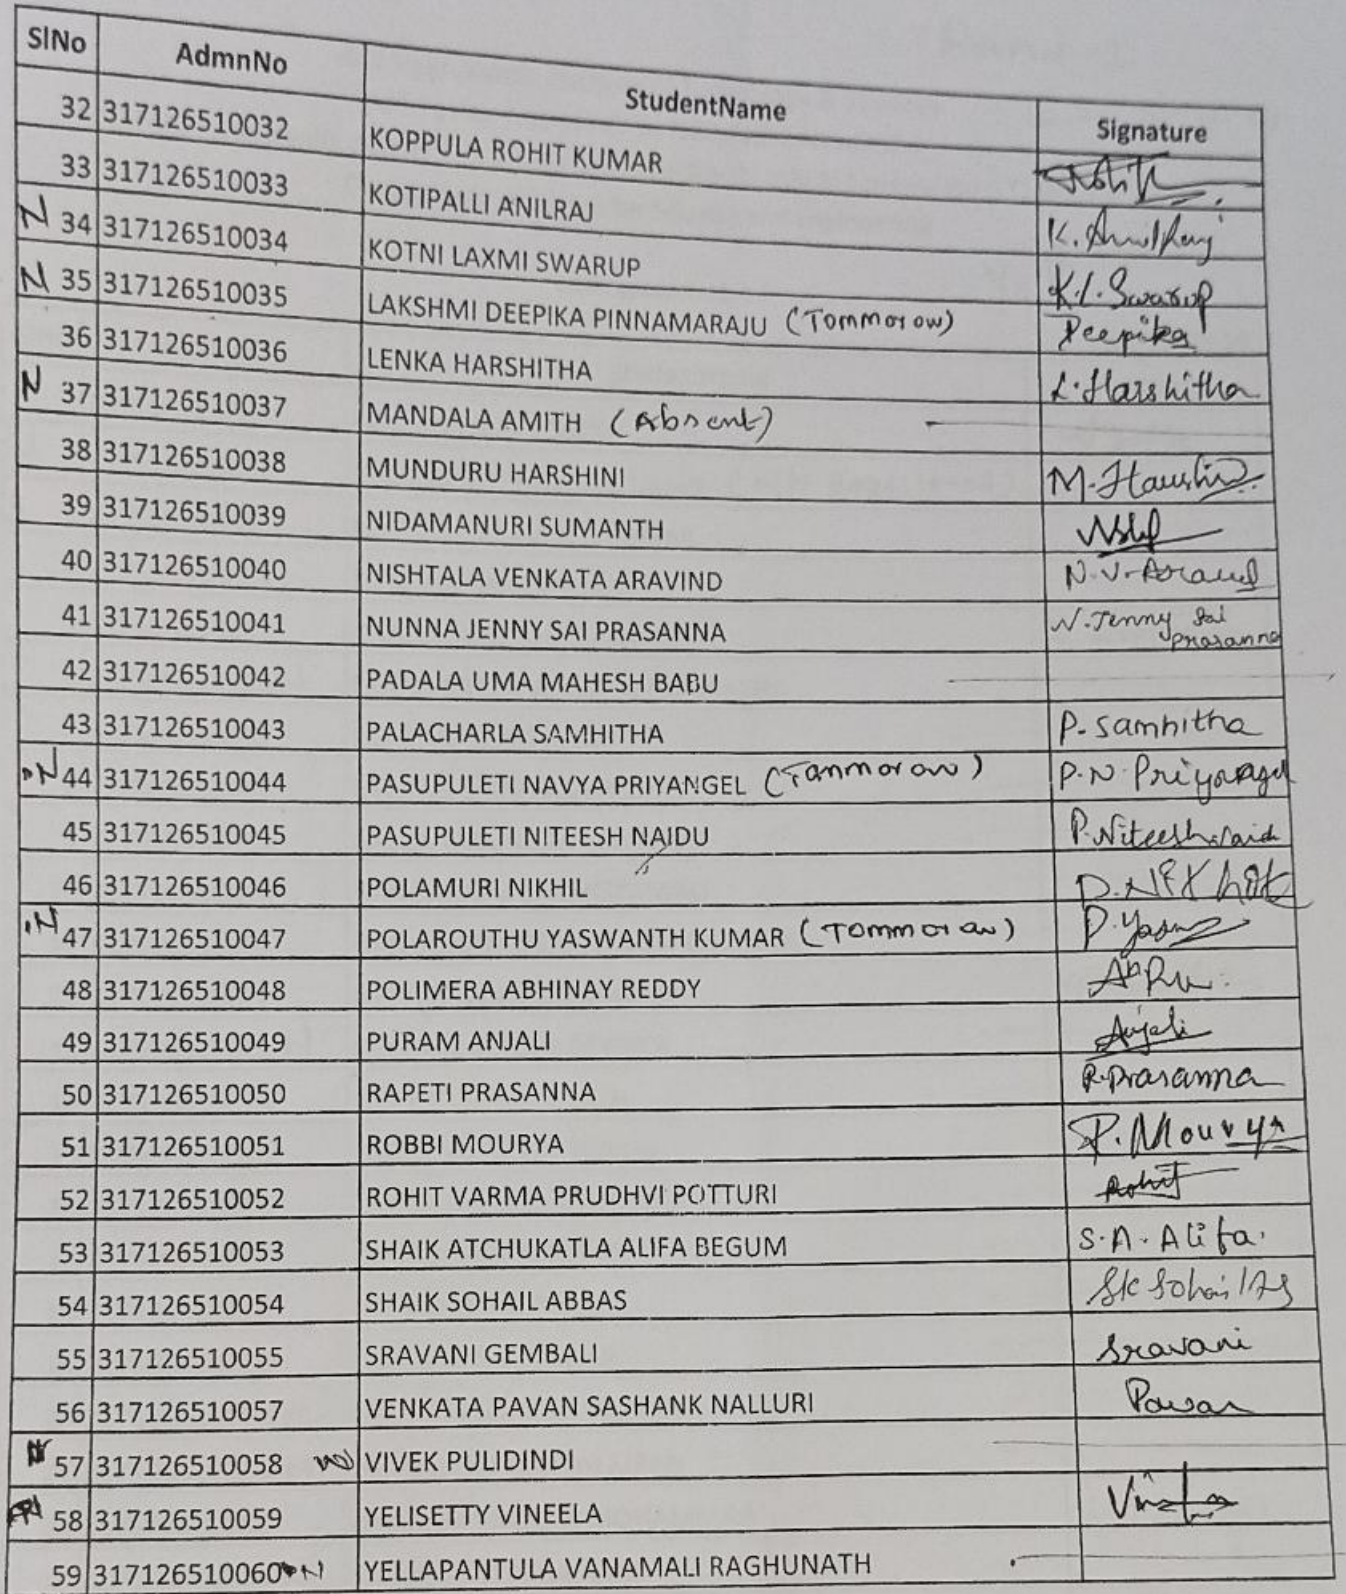 SlNo AdmnNo StudentName Signature
32 317126510032 KOPPULA ROHIT KUMAR Rohit
33 317126510033 KOTIPALLI ANILRAJ K. AnilRaj
N 34 317126510034 KOTNI LAXMI SWARUP K.L.Swarup
N 35 317126510035 LAKSHMI DEEPIKA PINNAMARAJU (Tommorow) Deepika
36 317126510036 LENKA HARSHITHA L.Harshitha
N 37 317126510037 MANDALA AMITH (Absent)
38 317126510038 MUNDURU HARSHINI M.Harshini
39 317126510039 NIDAMANURI SUMANTH
40 317126510040 NISHTALA VENKATA ARAVIND N.V.Aravind
41 317126510041 NUNNA JENNY SAI PRASANNA N.Jenny Sai Prasanna
42 317126510042 PADALA UMA MAHESH BABU
43 317126510043 PALACHARLA SAMHITHA P.Samhitha
N 44 317126510044 PASUPULETI NAVYA PRIYANGEL (Tanmorow) P.N.Priyangel
45 317126510045 PASUPULETI NITEESH NAIDU P.Niteesh
46 317126510046 POLAMURI NIKHIL P.Nikhil
N 47 317126510047 POLAROUTHU YASWANTH KUMAR (Tommorow) P.
48 317126510048 POLIMERA ABHINAY REDDY
49 317126510049 PURAM ANJALI Anjali
50 317126510050 RAPETI PRASANNA R.Prasanna
51 317126510051 ROBBI MOURYA R.Mourya
52 317126510052 ROHIT VARMA PRUDHVI POTTURI Rohit
53 317126510053 SHAIK ATCHUKATLA ALIFA BEGUM S.A.Alifa.
54 317126510054 SHAIK SOHAIL ABBAS SK Sohail
55 317126510055 SRAVANI GEMBALI Sravani
56 317126510057 VENKATA PAVAN SASHANK NALLURI Pavan
57 317126510058 VIVEK PULIDINDI
58 317126510059 YELISETTY VINEELA
59 317126510060 N YELLAPANTULA VANAMALI RAGHUNATH